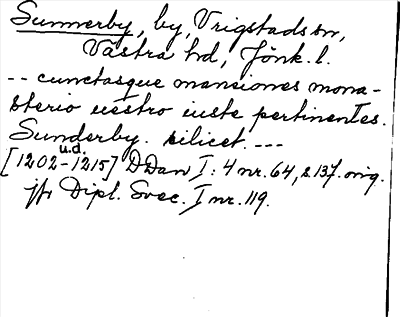 Sunnerby, by, Vrigstads sn,
Västra hd, Jönk. l.
-- cunctasque mansiones mona-
sterio uestro iuste pertinentes.
Sunderby. silicet. ---
u.d.
[1202-1215] DDan I: 4 nr. 64, s. 137. orig.
jfr Dipl. Svec. I nr. 119.